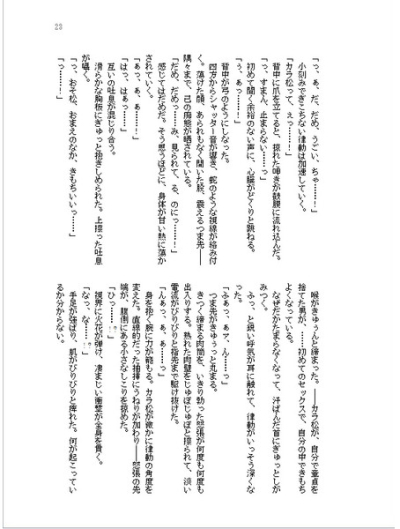 23
「っ、ぁ、だ、だめ、うごい、ちゃ……！」
小刻みでぎこちない律動は加速していく。
「カラ松って、ぇっ……！」
背中に爪を立てると、掠れた呻きが鼓膜に流れ込んだ。
「っ、すまん、止まらない……っ」
初めて聞く余裕のない声に、心臓がどくりと跳ねる。
「ぅ、あっ……！」
背中が弓のようにしなった。
四方からシャッター音が響き、蛇のような視線が絡み付
く。蕩けた顔、あられもなく開いた股、震えるつま先――
隅々まで、己の痴態が晒されている。
「だめ、だめっ……み、見られて、る、のにっ……！」
感じてはだめだ。そう思うほどに、身体が甘い熱に蕩か
されていく。
「あっ、ぁ、ぁ……！」
「はっ、はぁっ……」
互いの吐息が混じり合う。
滑らかな胸板にぎゅっと抱きしめられた。上擦った吐息
が囁く。
「っ、おそ松、おまえのなか、きもちいいっ……」
「っ……！」
喉がきゅぅんと締まった。――カラ松が、自分で童貞を
捨てた男が、……初めてのセックスで、自分の中できもち
よくなっている。
なぜだかたまらなくなって、汗ばんだ首にぎゅっとしが
みつく。
ふっ、と鋭い呼気が耳に触れて、律動がいっそう深くな
った。
「ふぁっ、ぁァ、ん……っ」
つま先がきゅぅっと丸まる。
きつく締まる肉筒を、いきり勃った怒張が何度も何度も
出入りする。熟れた肉襞をじゅぽじゅぽと擦られて、淡い
電流がびりびりと指先まで駆け抜けた。
「んぁっ、ぁ、あ……っ」
身を抱く腕に力が籠もる。カラ松が微かに律動の角度を
変えた。直線的だった抽挿にうねりが加わり――怒張の先
端が、腹側にある小さなしこりを掠めた。
「ひっ……！？」
視界に火花が弾け、凄まじい衝撃が全身を貫く。
「なっ、な……！？」
手足が強ばり、肌がびりびりと痺れた。何が起こってい
るか分からない。